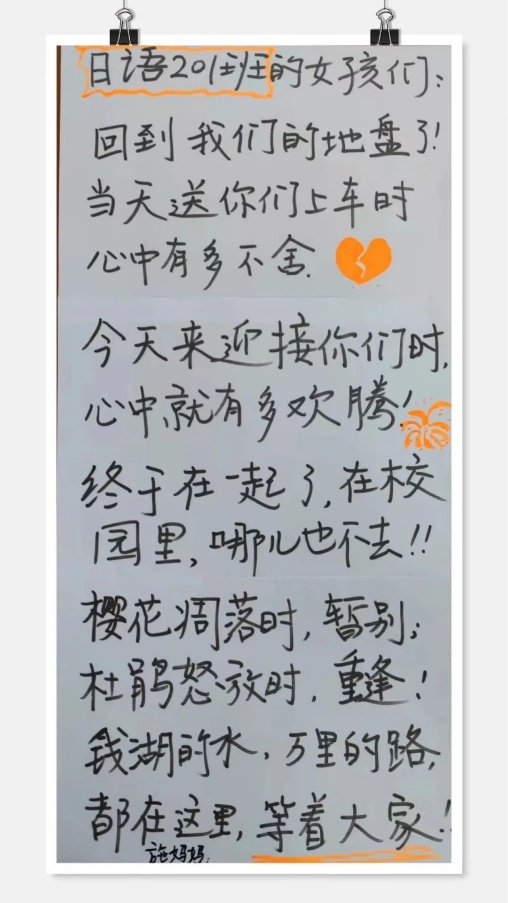 日语201班的女孩们:
回到我们的地盘了!
当天送你们上车时
心中有多不舍.
今天来迎接你们时,
心中就有多欢腾!
终于在一起了,在校
园里,哪儿也不去!!
樱花凋落时,暂别;
杜鹃怒放时,重逢!
钱湖的水,万里的路,
都在这里,等着大家!!
施妈妈.